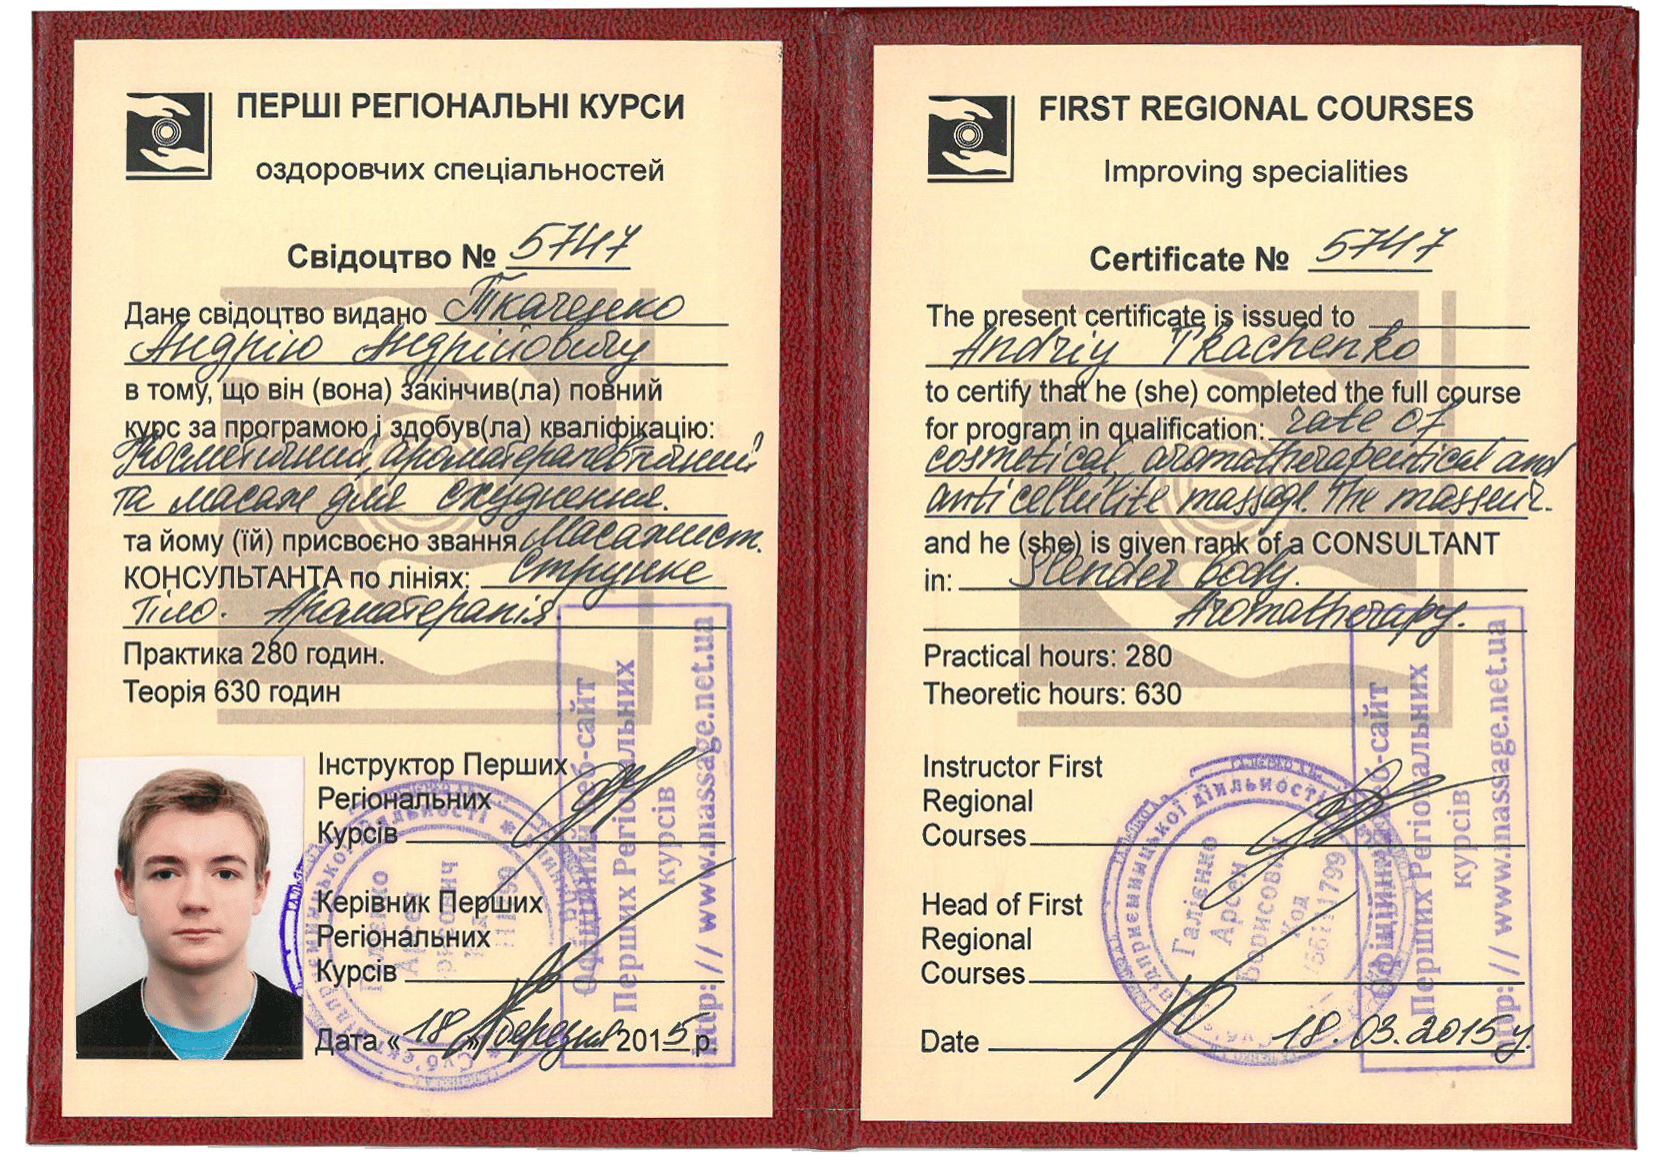 ПЕРШІ РЕГІОНАЛЬНІ КУРСИ
оздоровчих спеціальностей
Свідоцтво № 5747
Дане свідоцтво видано Ткаченко
Андрію Андрійовичу
в тому, що він (вона) закінчив(ла) повний
курс за програмою і здобув(ла) кваліфікацію:
Косметичний, ароматерапевтичний
та масаж для схуднення.
та йому (їй) присвоєно звання Масажист.
КОНСУЛЬТАНТА по лініях: Струнке
Тіло. Ароматерапія
Практика 280 годин.
Теорія 630 годин
Інструктор Перших
Регіональних
Курсів
Керівник Перших
Регіональних
Курсів
Дата «18» березня 2015 р
Офіційний веб-сайт
Перших Регіональних
курсів
http:// www.massage.net.ua
FIRST REGIONAL COURSES
Improving specialities
Certificate № 5747
The present certificate is issued to
Andriy Tkachenko
to certify that he (she) completed the full course
for program in qualification: rate of
cosmetical, aromatherapeutical and
anticellulite massage. The masseur.
and he (she) is given rank of a CONSULTANT
in: Slender body.
Aromatherapy.
Practical hours: 280
Theoretic hours: 630
Instructor First
Regional
Courses
Head of First
Regional
Courses
Date 18.03.2015 у.
Галієнко
Арсен
Борисович
Код
Офіційний веб-сайт
Перших Регіональних
курсів
http:// www.massage.net.ua